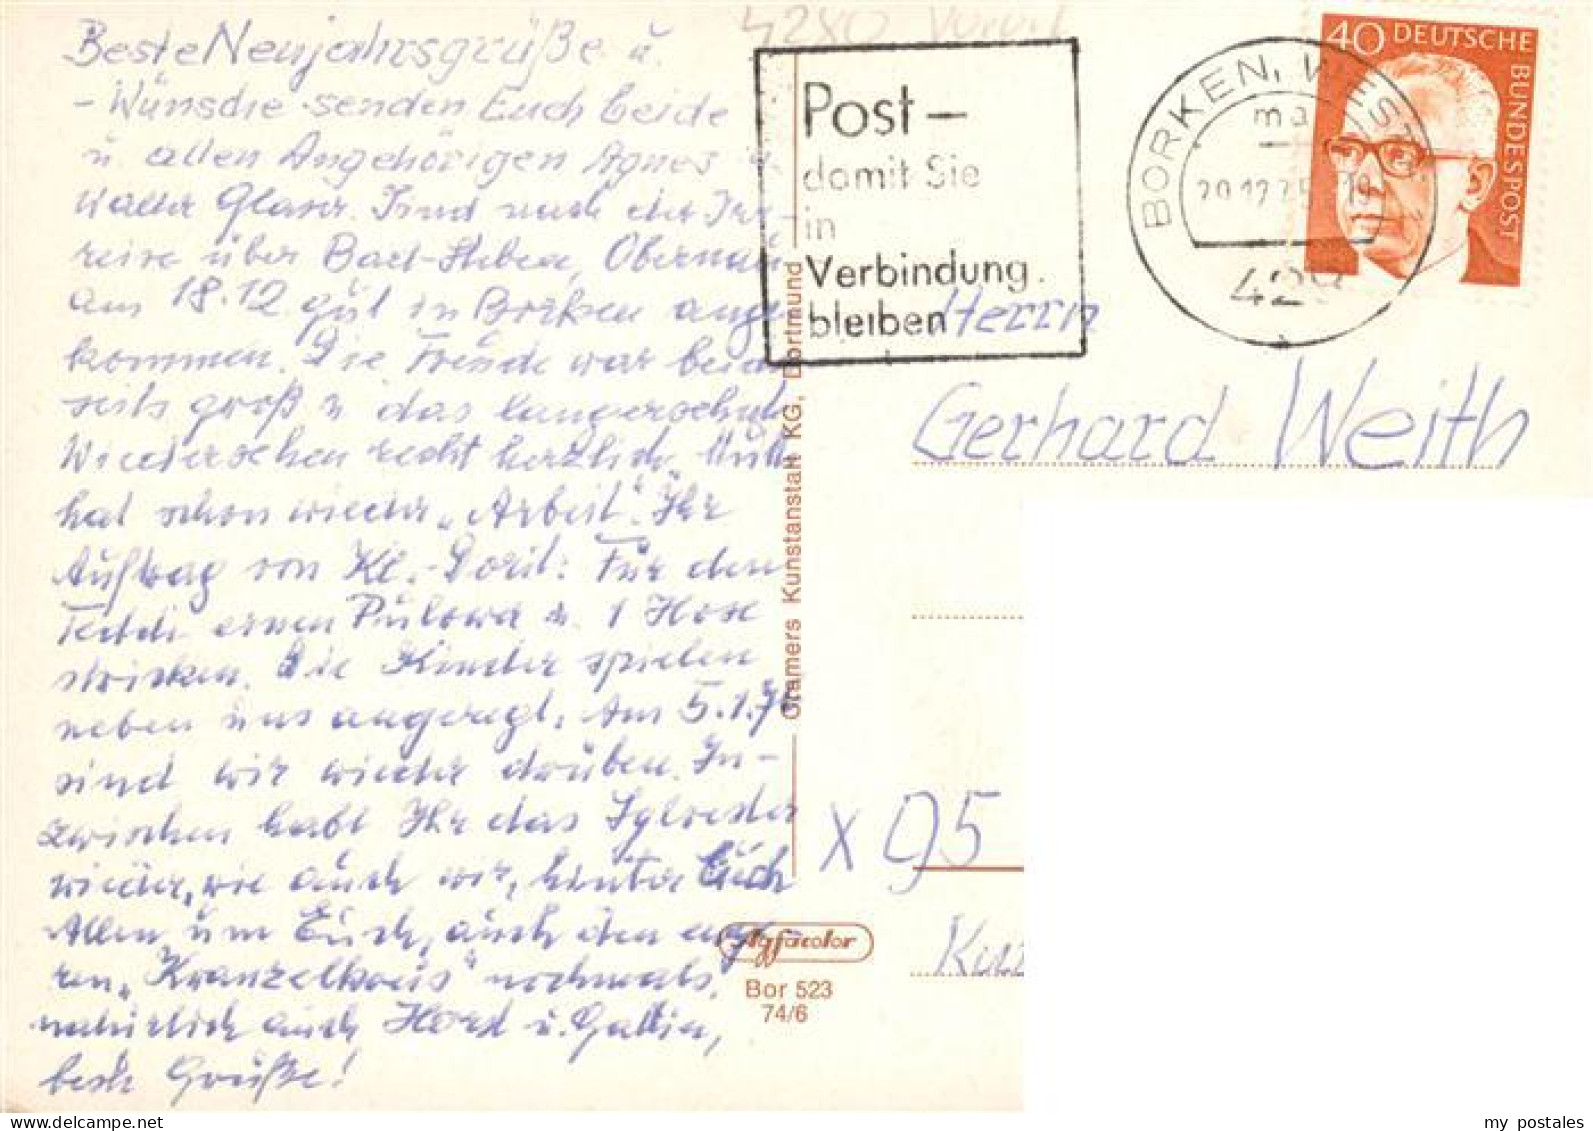 Beste Neujahrsgrüße u.
- Wünsche senden Euch beide
u. allen Angehörigen Agnes u.
Walter Glaser. Sind nach der Irr-
reise über Bad-Steben, Obernau
am 18.12. gut in Borken ange-
kommen. Die Freude war beider-
seits groß u. das langersehnte
Wiedersehen recht herzlich. Mutti
hat schon wieder "Arbeit". Ihr
Auftrag von Kl.-Dorit: Für den
Teddi einen Pulower u. 1 Hose
stricken. Die Kinder spielen
neben uns angeregt. Am 5.1.76
sind wir wieder drüben. In-
zwischen habt Ihr das Sylvester
wieder, wie auch wir, hinter Euch
Allen um Euch, auch den
"Kranzelkreis" nochmals,
natürlich auch Horst u. Gattin,
beste Grüße!
4280
Post -
damit Sie
in
Verbindung
bleiben
BORKEN, WESTF
ma
29.12.75
428
40 DEUTSCHE
BUNDESPOST
Herrn
Gerhard Weith
x 95
Gramers Kunstanstalt KG, Dortmund
Agfacolor
Bor 523
74/6
my postales